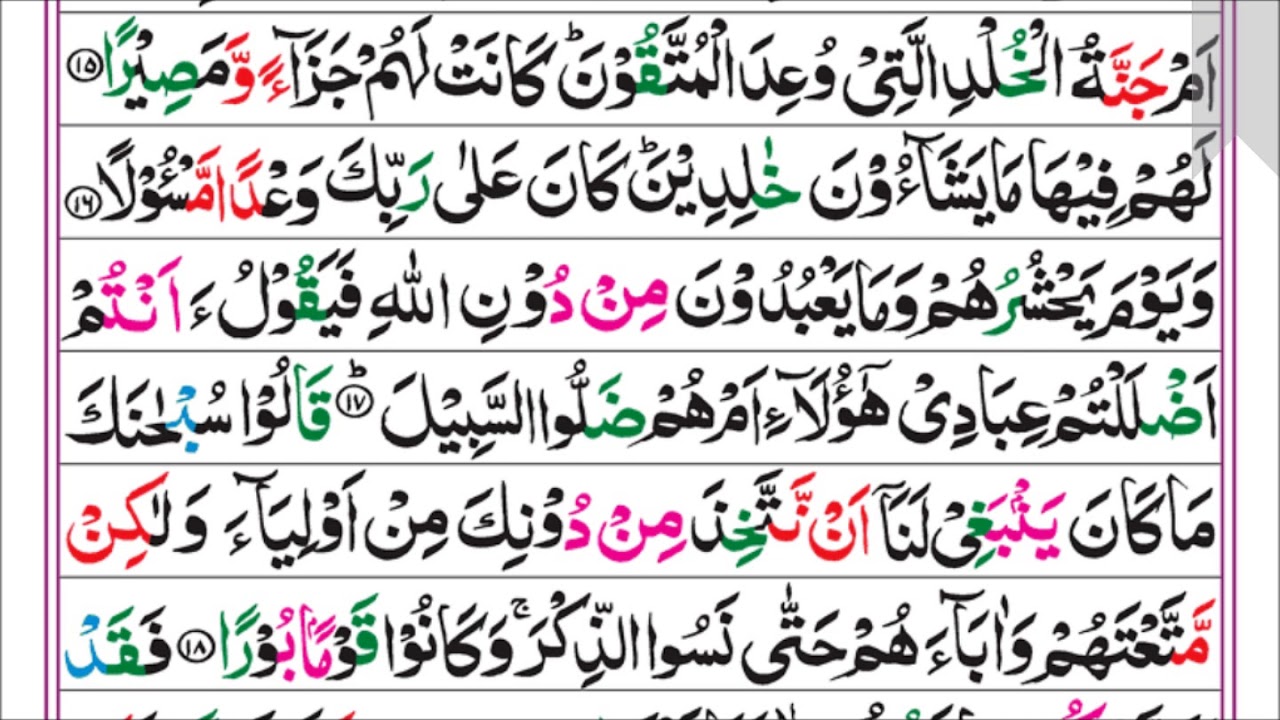 اَمْ جَنَّةُ الْخُلْدِ الَّتِیْ وُعِدَ الْمُتَّقُوْنَ ؕ كَانَتْ لَهُمْ جَزَآءً وَّ مَصِیْرًا ۝۱۵
لَهُمْ فِیْهَا مَا یَشَآءُوْنَ خٰلِدِیْنَ ؕ كَانَ عَلٰى رَبِّكَ وَعْدًا مَّسْـُٔوْلًا ۝۱۶
وَ یَوْمَ یَحْشُرُهُمْ وَ مَا یَعْبُدُوْنَ مِنْ دُوْنِ اللّٰهِ فَیَقُوْلُ ءَاَنْتُمْ
اَضْلَلْتُمْ عِبَادِیْ هٰۤؤُلَآءِ اَمْ هُمْ ضَلُّوا السَّبِیْلَ ۝۱۷ؕ قَالُوْا سُبْحٰنَكَ
مَا كَانَ یَنْۢبَغِیْ لَنَاۤ اَنْ نَّتَّخِذَ مِنْ دُوْنِكَ مِنْ اَوْلِیَآءَ وَ لٰكِنْ
مَّتَّعْتَهُمْ وَ اٰبَآءَهُمْ حَتّٰى نَسُوا الذِّكْرَ ۚ وَ كَانُوْا قَوْمًۢا بُوْرًا ۝۱۸ فَقَدْ